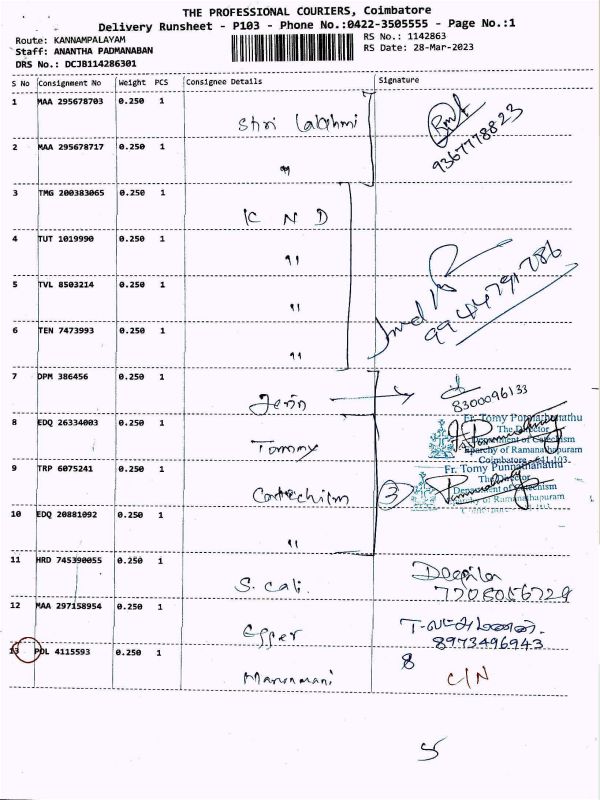 THE PROFESSIONAL COURIERS, Coimbatore
Delivery Runsheet - P103 - Phone No.:0422-3505555 - Page No.:1
Route: KANNAMPALAYAM
RS No.: 1142863
Staff: ANANTHA PADMANABAN
RS Date: 28-Mar-2023
DRS No.: DCJB114286301
S No Consignment No Weight PCS Consignee Details Signature
1 MAA 295678703 0.250 1
Shri Lakshmi
9367778823
2 MAA 295678717 0.250 1
"
3 TMG 200383065 0.250 1
K N D
4 TUT 1019990 0.250 1
"
9944791786
5 TVL 8503214 0.250 1
"
6 TEN 7473993 0.250 1
"
7 DPM 386456 0.250 1
Jerin
8300096133
8 EDQ 26334003 0.250 1
Tommy
Fr. Tomy Punnathanathu
The Director
Department of Catechism
Eparchy of Ramanathapuram
Coimbatore - 641 103.
9 TRP 6075241 0.250 1
Catechism
3
Fr. Tomy Punnathanathu
The Director
Department of Catechism
Eparchy of Ramanathapuram
10 EDQ 20881092 0.250 1
"
11 HRD 745390055 0.250 1
S. Cali.
Deepika
12 MAA 297158954 0.250 1
8973496943
13 POL 4115593 0.250 1
8
C/N